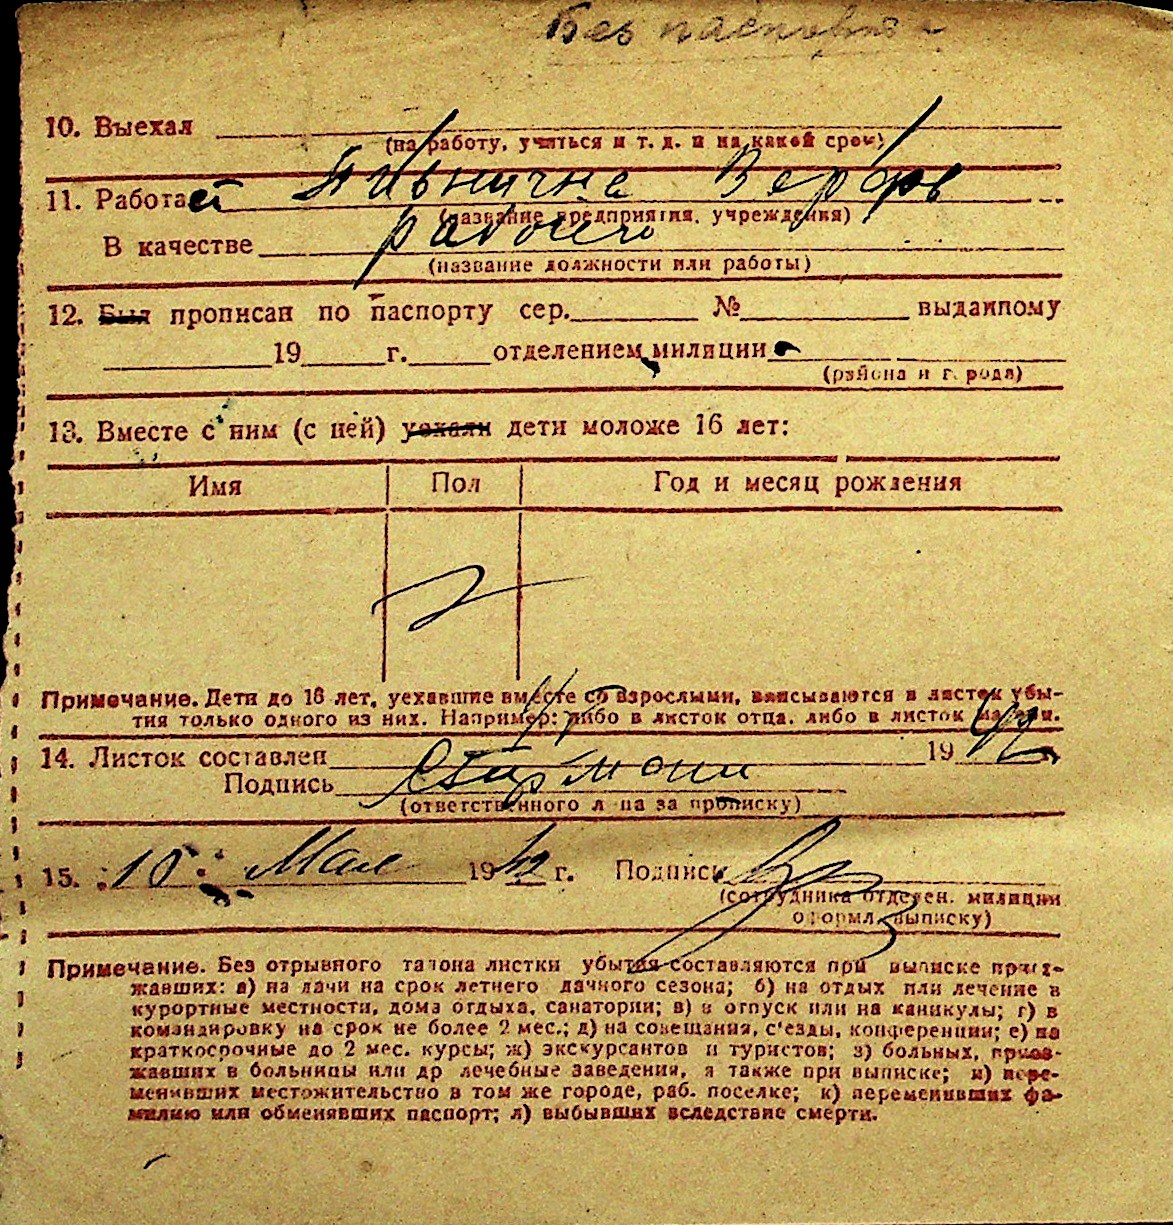 Без паспорта
10. Выехал
(на работу, учиться и т. д. и на какой срок)
11. Работает Пивнична Верфь
(название предприятия, учреждения)
В качестве рабочего
(название должности или работы)
12. Был прописан по паспорту сер. № выданному
19 г. отделением милиции
(района и города)
13. Вместе с ним (с ней) уехали дети моложе 16 лет:
Имя Пол Год и месяц рождения
Примечание. Дети до 16 лет, уехавшие вместе со взрослыми, вписываются в листок убы-
тия только одного из них. Например: либо в листок отца, либо в листок матери.
14. Листок составлен 1942
Подпись
(ответственного лица за прописку)
15. 18 Мая 1942 г. Подпись
(сотрудника отделен. милиции
оформл. выписку)
Примечание. Без отрывного талона листки убытия составляются при выписке приез-
жавших: а) на дачи на срок летнего дачного сезона; б) на отдых или лечение в
курортные местности, дома отдыха, санатории; в) в отпуск или на каникулы; г) в
командировку на срок не более 2 мес.; д) на совещания, с'езды, конференции; е) на
краткосрочные до 2 мес. курсы; ж) экскурсантов и туристов; з) больных, приез-
жавших в больницы или др лечебные заведения, а также при выписке; и) пере-
менивших местожительство в том же городе, раб. поселке; к) переменивших фа-
милию или обменявших паспорт; л) выбывших вследствие смерти.